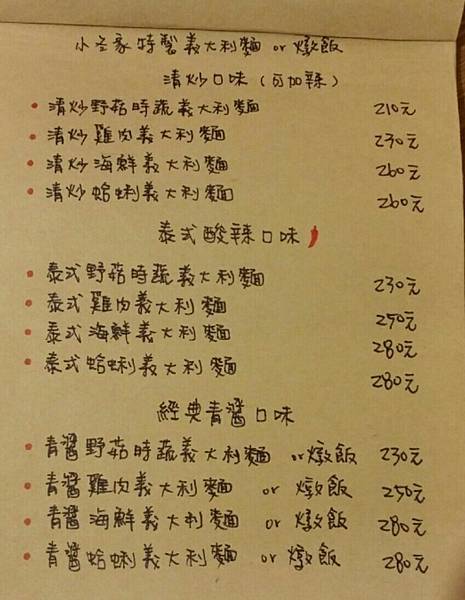 小圣家特製義大利麵 or 燉飯
清炒口味(可加辣)
清炒野菇時蔬義大利麵 210元
清炒雞肉義大利麵 230元
清炒海鮮義大利麵 260元
清炒蛤蜊義大利麵 260元
泰式酸辣口味
泰式野菇時蔬義大利麵 230元
泰式雞肉義大利麵 250元
泰式海鮮義大利麵 280元
泰式蛤蜊義大利麵 280元
經典青醬口味
青醬野菇時蔬義大利麵 or燉飯 230元
青醬雞肉義大利麵 or 燉飯 250元
青醬海鮮義大利麵 or 燉飯 280元
青醬蛤蜊義大利麵 or 燉飯 280元